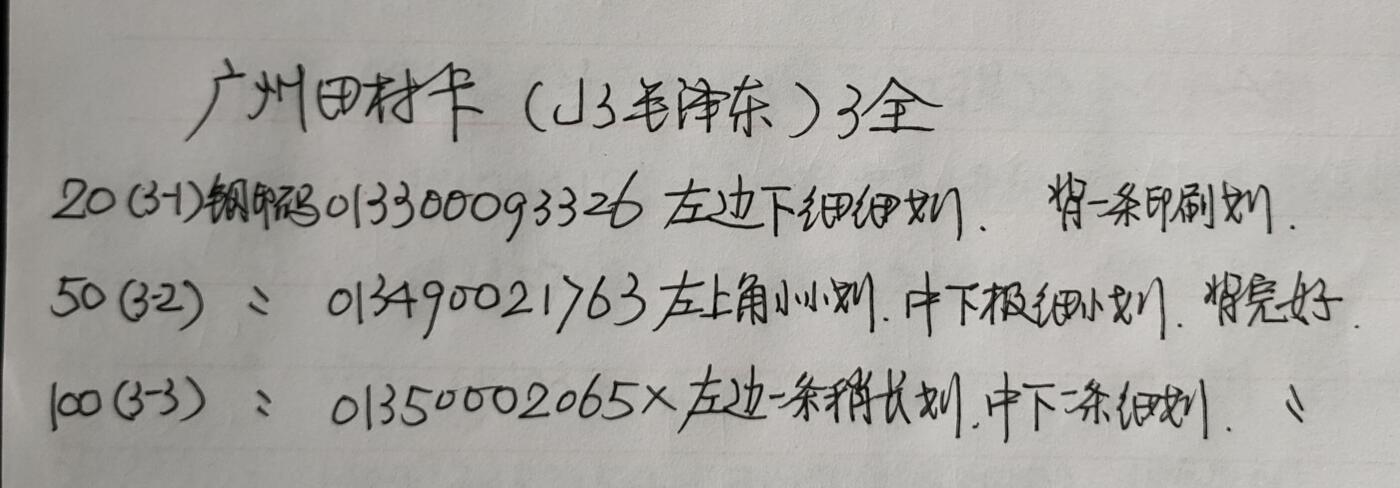 广州田村卡（J3毛泽东）3全
20(3-1)钢印码013300093326左边下细细划.背一条印刷划.
50(3-2) 〃 013490021763左上角小小划.中下极细小划.背完好.
100(3-3) 〃 01350002065×左边一条稍长划.中下二条细划.〃